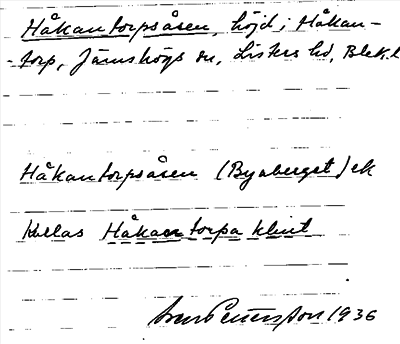 Håkantorpsåsen, höjd i Håkan-
-torp, Jämshögs sn, Listers hd, Blek.l
Håkantorpsåsen (Byaberget) ek
Kallas Håkantorpa klint
Sven Petersson 1936